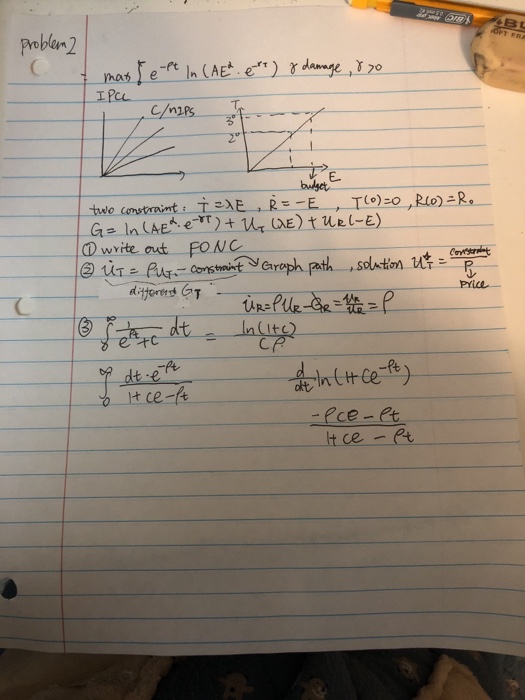 problem 2
max ∫ e^-ρt ln (AE^α · e^-γT) γ damage, γ>0
IPCC
C/nips
T
3°
2°
E
budget
two constraint: Ṫ = λE, Ṙ = -E, T(0)=0, R(0)=R₀
G = ln (AE^α · e^-γT) + U_T (λE) + U_R(-E)
① write out FONC
② U̇_T = ρU_T - constraint → Graph path, solution U_T^* = Constraint / ρ
↓
Price
different G_T
U̇_R = ρU_R - G_R = U̇_R/U_R = ρ
③ ∫₀^∞ 1/(e^ρt + c) dt = ln(1+c)/(cρ)
∫₀^∞ dt·e^-ρt / 1+ce-ρt
d/dt ln(1+ce^-ρt)
-ρce-ρt / 1+ce-ρt